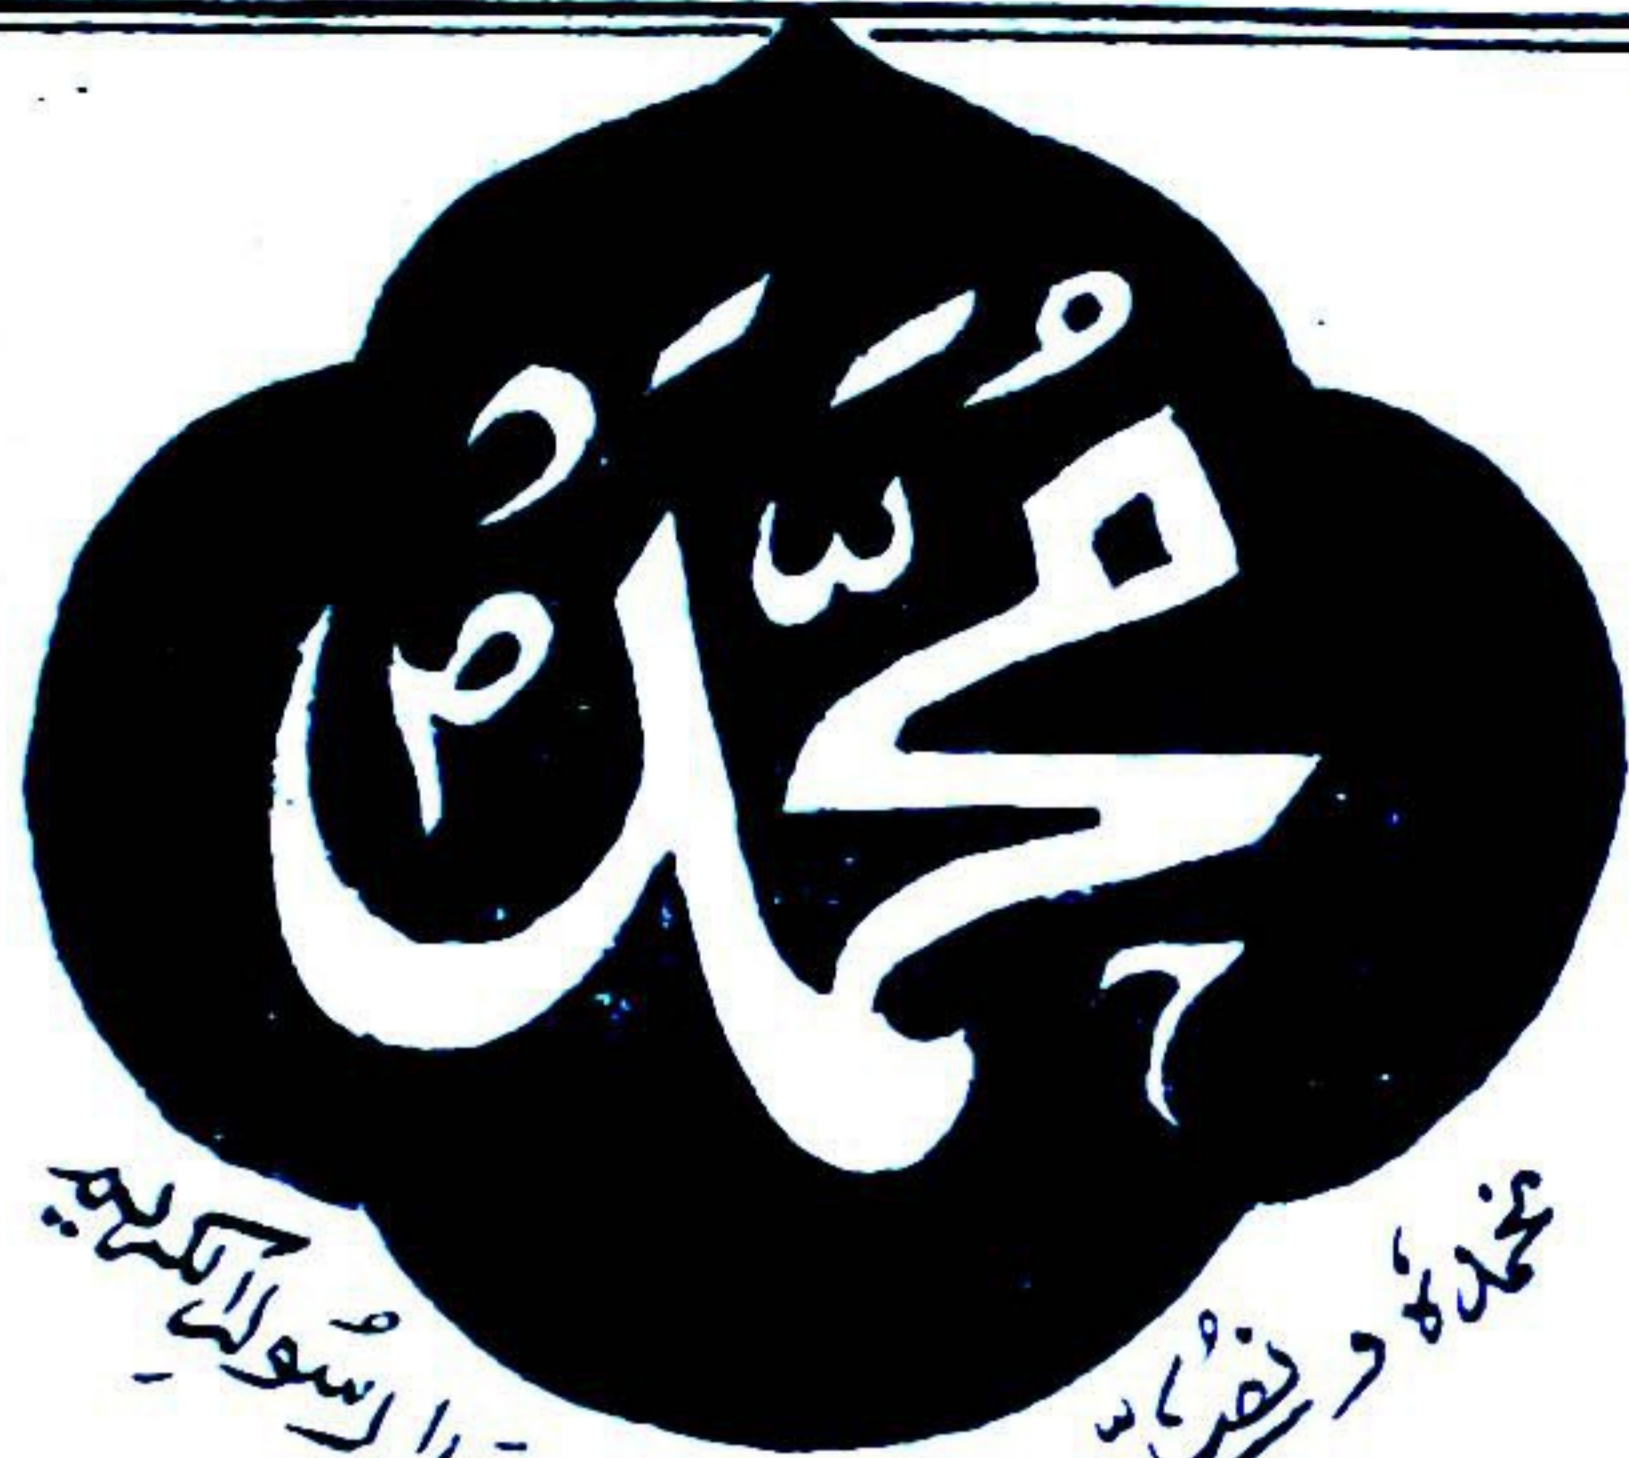 مُحَمَّدٌ ص
نحمدہٗ و نصلی
رسولہ الکریم